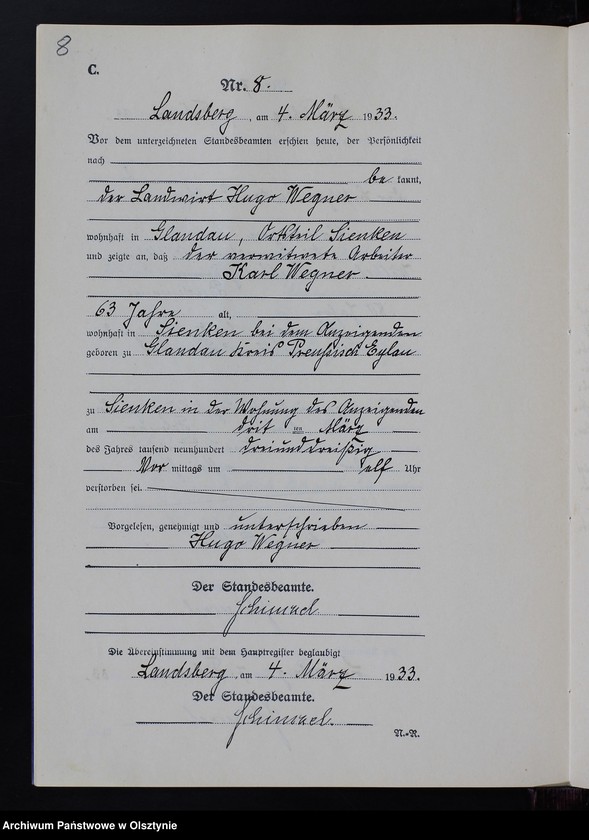 8
C.
Nr. 8.
Landsberg, am 4. März 1933.
Vor dem unterzeichneten Standesbeamten erschien heute, der Persönlichkeit
nach
be kannt,
der Landwirt Hugo Wegner
wohnhaft in Glandau, Ortsteil Sienken
und zeigte an, daß der verwitwete Arbeiter
Karl Wegner
63 Jahre alt,
wohnhaft in Sienken bei dem Anzeigenden
geboren zu Glandau Kreis Preußisch Eylau
zu Sienken in der Wohnung des Anzeigenden
am drit ten März
des Jahres tausend neunhundert dreiunddreißig
Vor mittags um elf Uhr
verstorben sei.
Vorgelesen, genehmigt und unterschrieben
Hugo Wegner
Der Standesbeamte.
Die Übereinstimmung mit dem Hauptregister beglaubigt
Landsberg, am 4. März 1933.
Der Standesbeamte.
N.-R.
Archiwum Państwowe w Olsztynie